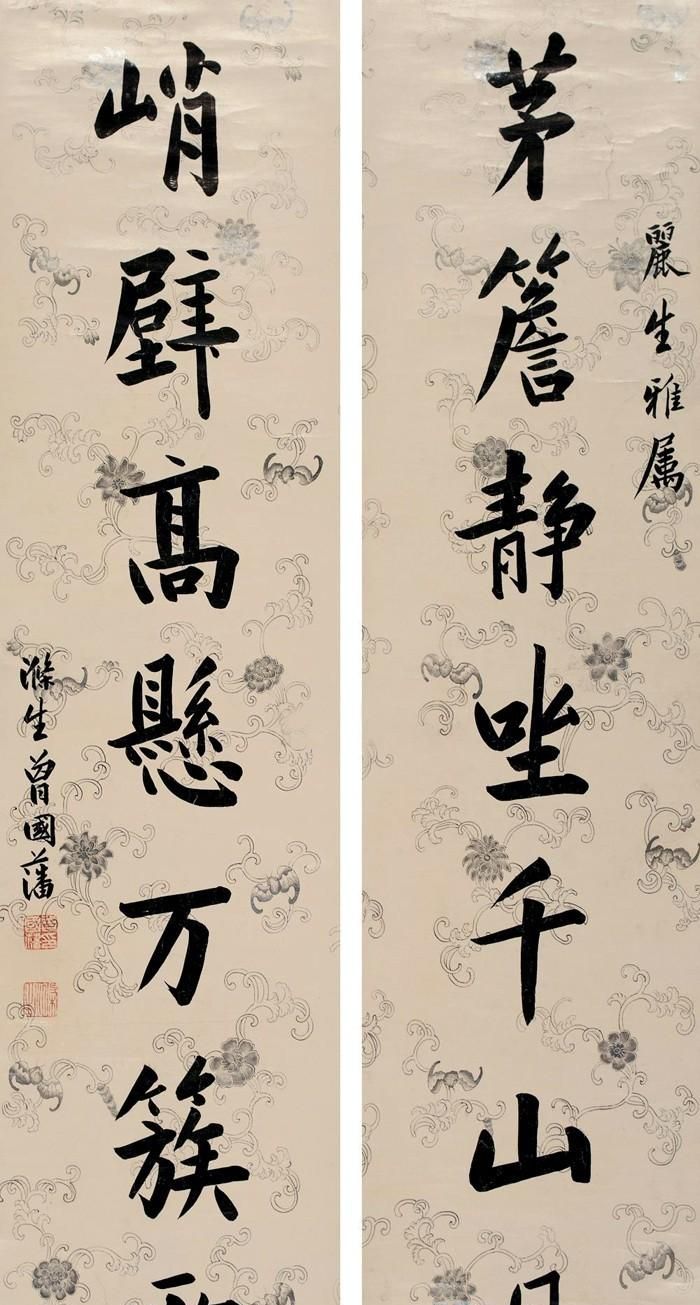 麗生雅属
茅簷静坐千山
峭壁高懸万簇
滌生曾國藩